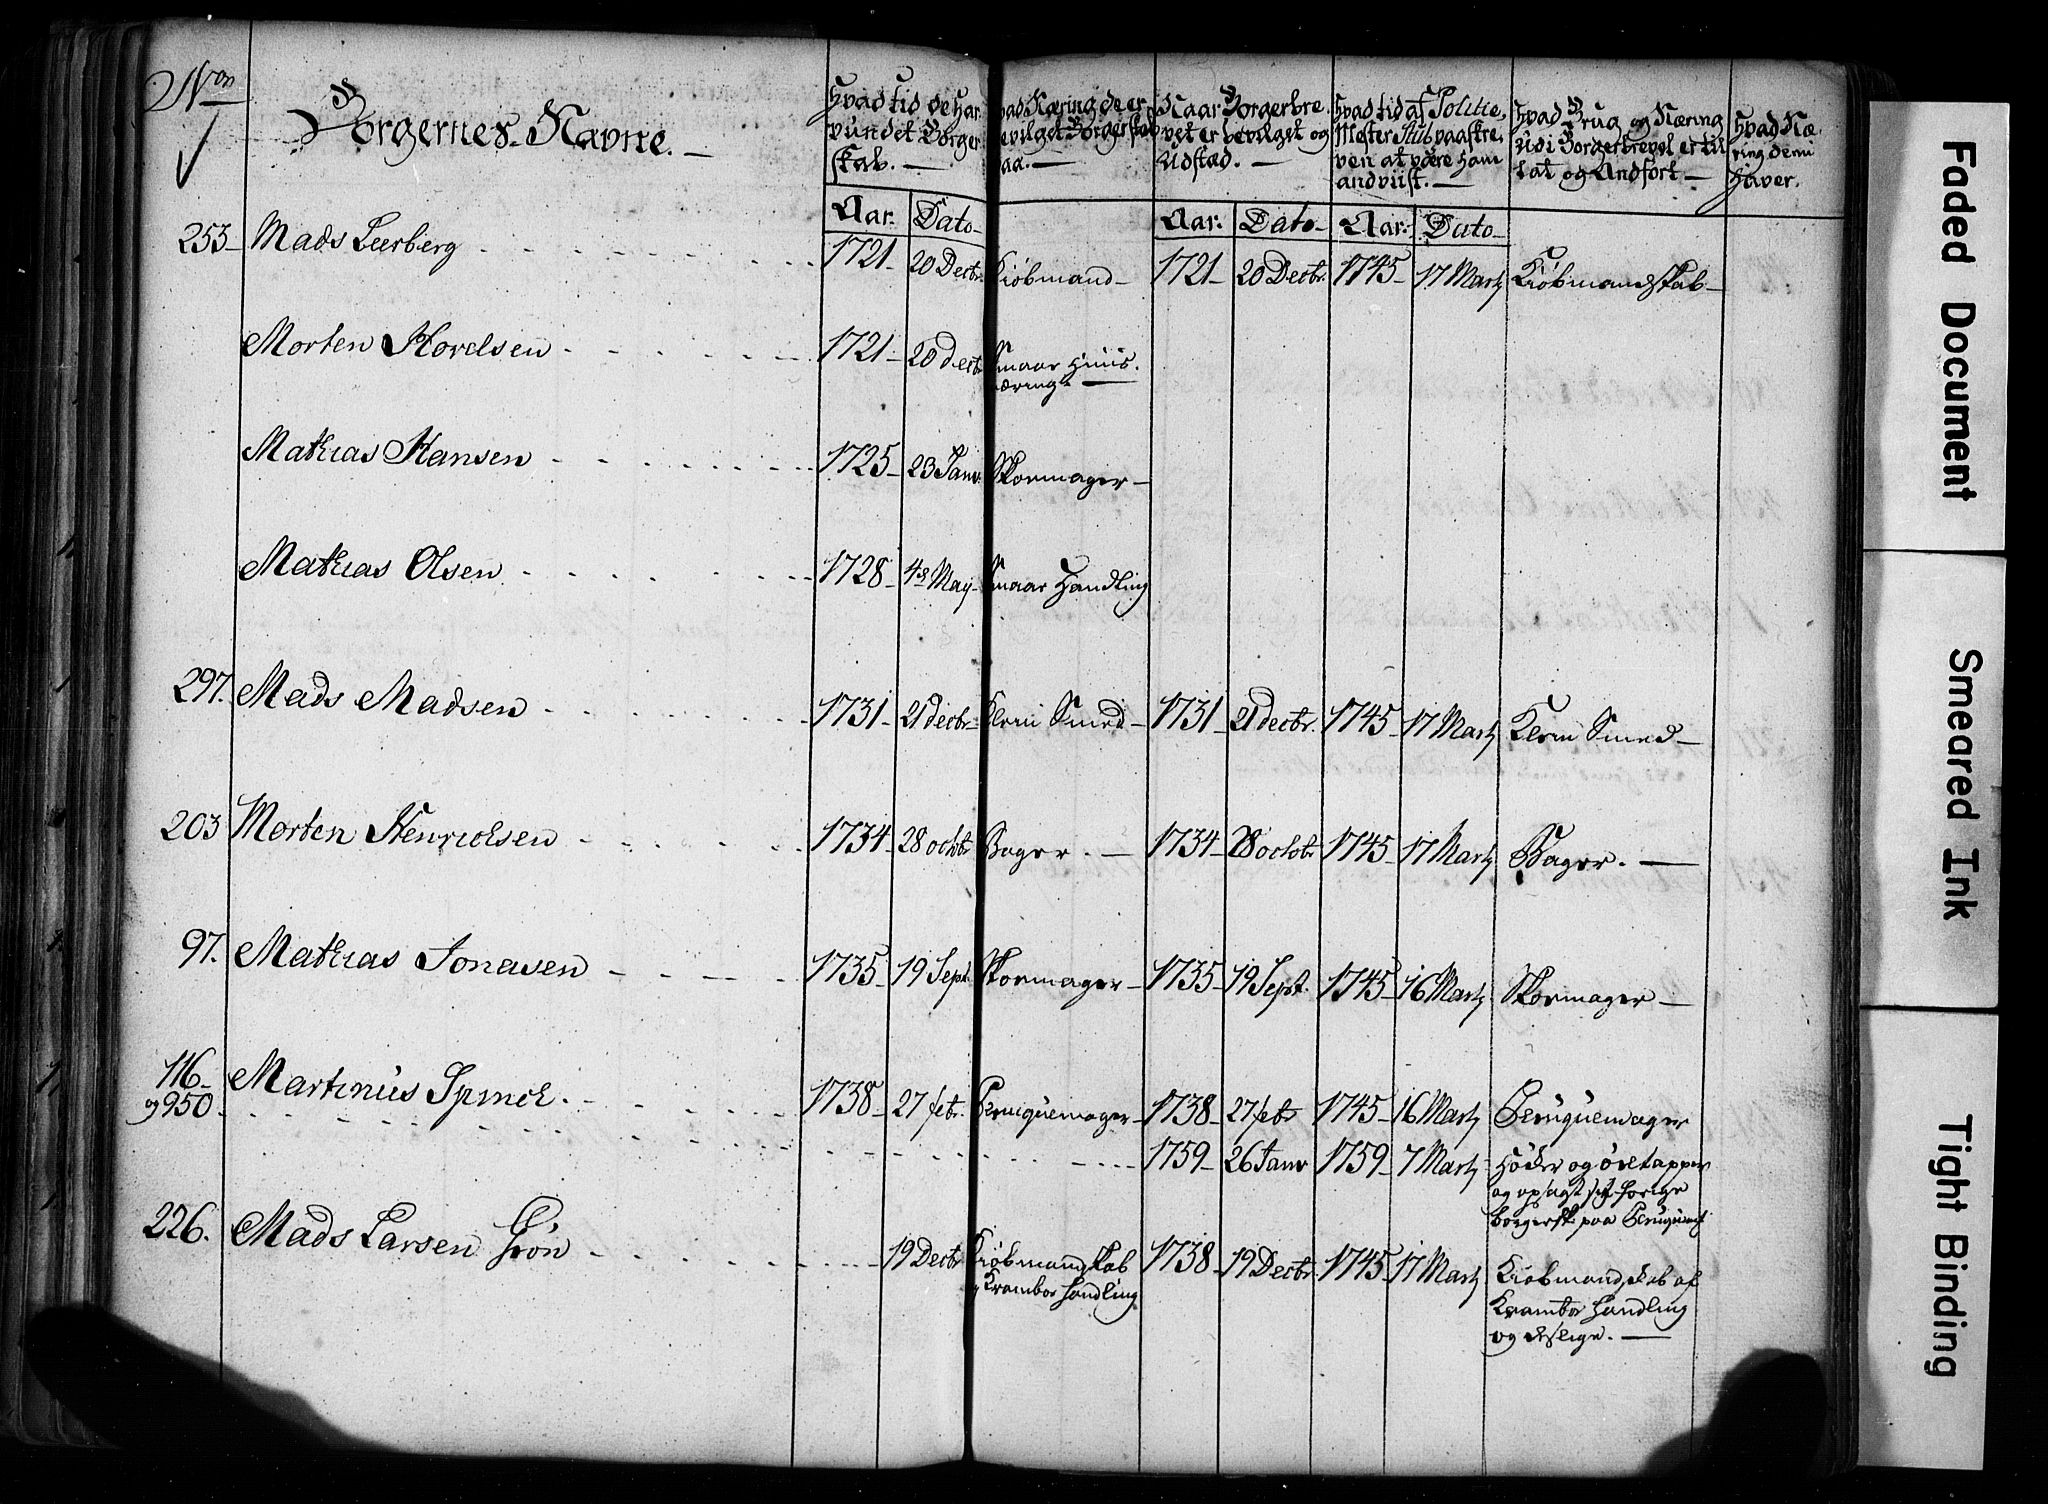 Nro
Borgernes Navne. —
Hvad tid de har
vundet Borger
skab. —
vad Næring de er
evilget Borgerskab
aa. —
Naar Borgerbre
vet er bevilget og
Udstæd. —
Hvad tid af Politie
Mester Stub paaskre
ven at være ham
andviist. —
Hvad Brug og Næring
udi Borgerbrevet er til
lat og Andført —
Hvad Næ
ring demi
Haver.
Aar. Dato Aar. Dato Aar. Dato
253 Mads Leerberg 1721 20 Decbr Kiøbmand 1721 20 Decbr. 1745 17 Marty Kiøbmandskab
Morten Hovelsen 1721 20 decb Smaar Huus
næring
Mathias Hansen 1725 23 Janv Skoemager
Mathias Olsen 1728 4 May Smaar Handling
297. Mads Madsen 1731 21 decbr Klein Smed 1731 21 decbr. 1745 17 Marty Klein Smed
203 Morten Henrichsen 1734 28 octobr Bager. 1734 28 octobr 1745 17 Marty Bager.
97. Mathias Jonasen 1735 19 Sept. Skoemager 1735 19 Sept. 1745 16 Marty Skoemager
116 Martinus Spinck. 1738 27 febr. Peruquemager 1738 27 febr 1745 16 Marty Peruquemager
og 950 1759 26 Janv 1759 7 Marty Høcker og øltapper
og opsagt sit forige
borgersk paa Peruquem
226. Mads Larsen Grön 19 Decbr Kiøbmandskab 1738 19 Decbr. 1745 17 Marty Kiøbmandskab af
og Kramboe Handling
Kramboe Handling
og deslige.
Faded Document
Smeared Ink
Tight Binding